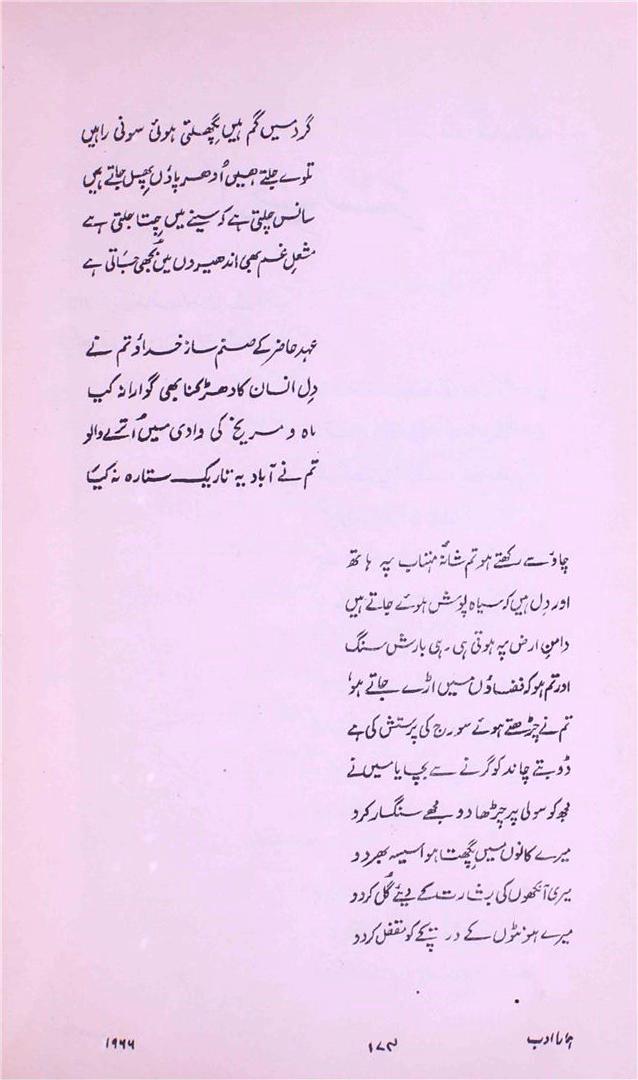 گرد میں گم ہیں پگھلتی ہوئی سونی راہیں
تلوے جلتے ہیں اُدھر پاؤں پھسل جاتے ہیں
سانس چلتی ہے کہ سینے میں چتا جلتی ہے
مشعلِ غم بھی اندھیروں میں بجھی جاتی ہے
عہدِ حاضر کے صنم ساز خداؤ تم نے
دلِ انسان کا دھڑکنا بھی گوارا نہ کیا
ماہ و مریخ کی وادی میں اُترنے والو
تم نے آباد یہ تاریک ستارہ نہ کیا
چاؤ سے رکھتے ہو تم شانۂ مہتاب پہ ہاتھ
اور دل ہیں کہ سیاہ پوش ہوئے جاتے ہیں
دامنِ ارض پہ ہوتی ہی رہی بارشِ سنگ
اور تم ہو کہ فضاؤں میں اڑے جاتے ہو
تم نے چڑھتے ہوئے سورج کی پرستش کی ہے
ڈوبتے چاند کو گرنے سے بچایا میں نے
مجھ کو سولی پر چڑھا دو مجھے سنگسار کرو
میرے کانوں میں پگھلتا ہوا سیسہ بھر دو
میری آنکھوں کی بشارت کے دیئے گُل کر دو
میرے ہونٹوں کے دریچے کو مقفل کر دو
ہمارا ادب
۱۷۳
۱۹۶۶